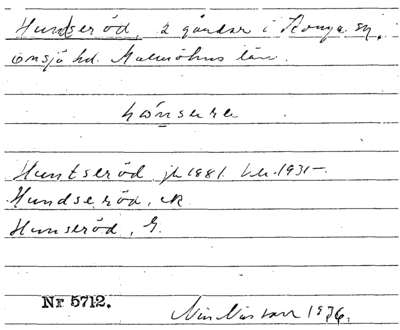 Huntseröd, 2 gårdar i Konga sn,
Onsjö hd. Malmöhus län.
hẁnsere
Huntseröd jb 1881 kk. 1931
Hundseröd, ek
Hunseröd, G.
Nr 5712.
1936.